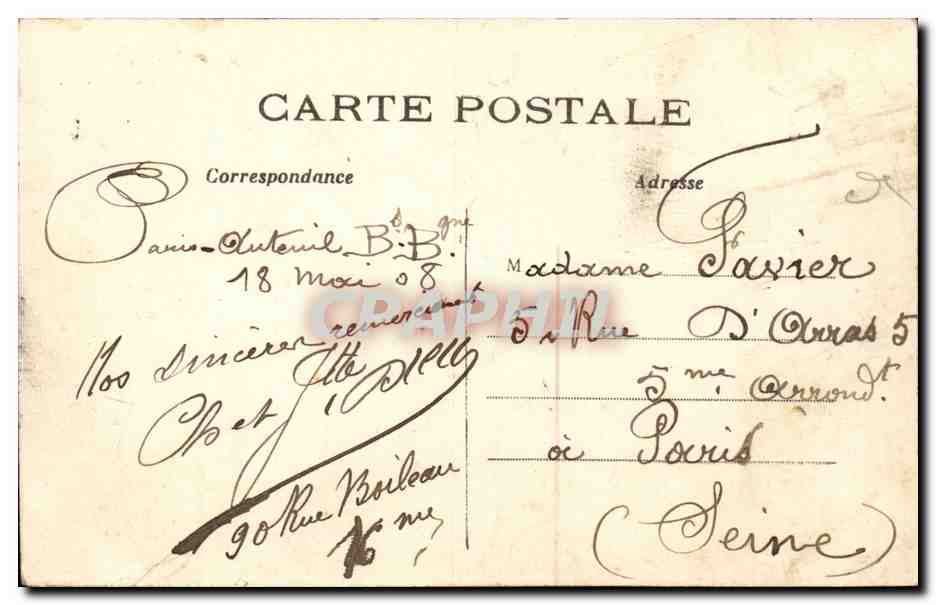 CARTE POSTALE
Correspondance
Paris-Auteuil Bd. Bgne.
18 Mai 08
Nos sincères remerciements
Ch et Jtte
90 Rue Boileau
16me
Adresse
Madame Favier
5 Rue D'Arras 5
5me Arrondt.
à Paris
(Seine)
CRAPHIL